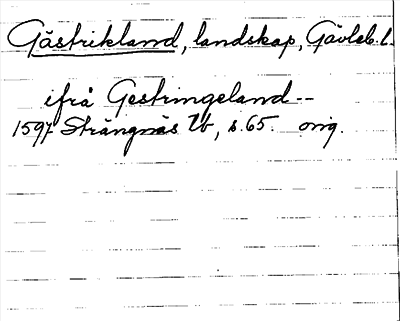 Gästrikland, landskap, Gävleb. l.
ifrå Gestringeland--
1597 Strängnäs Tb, s. 65. orig.